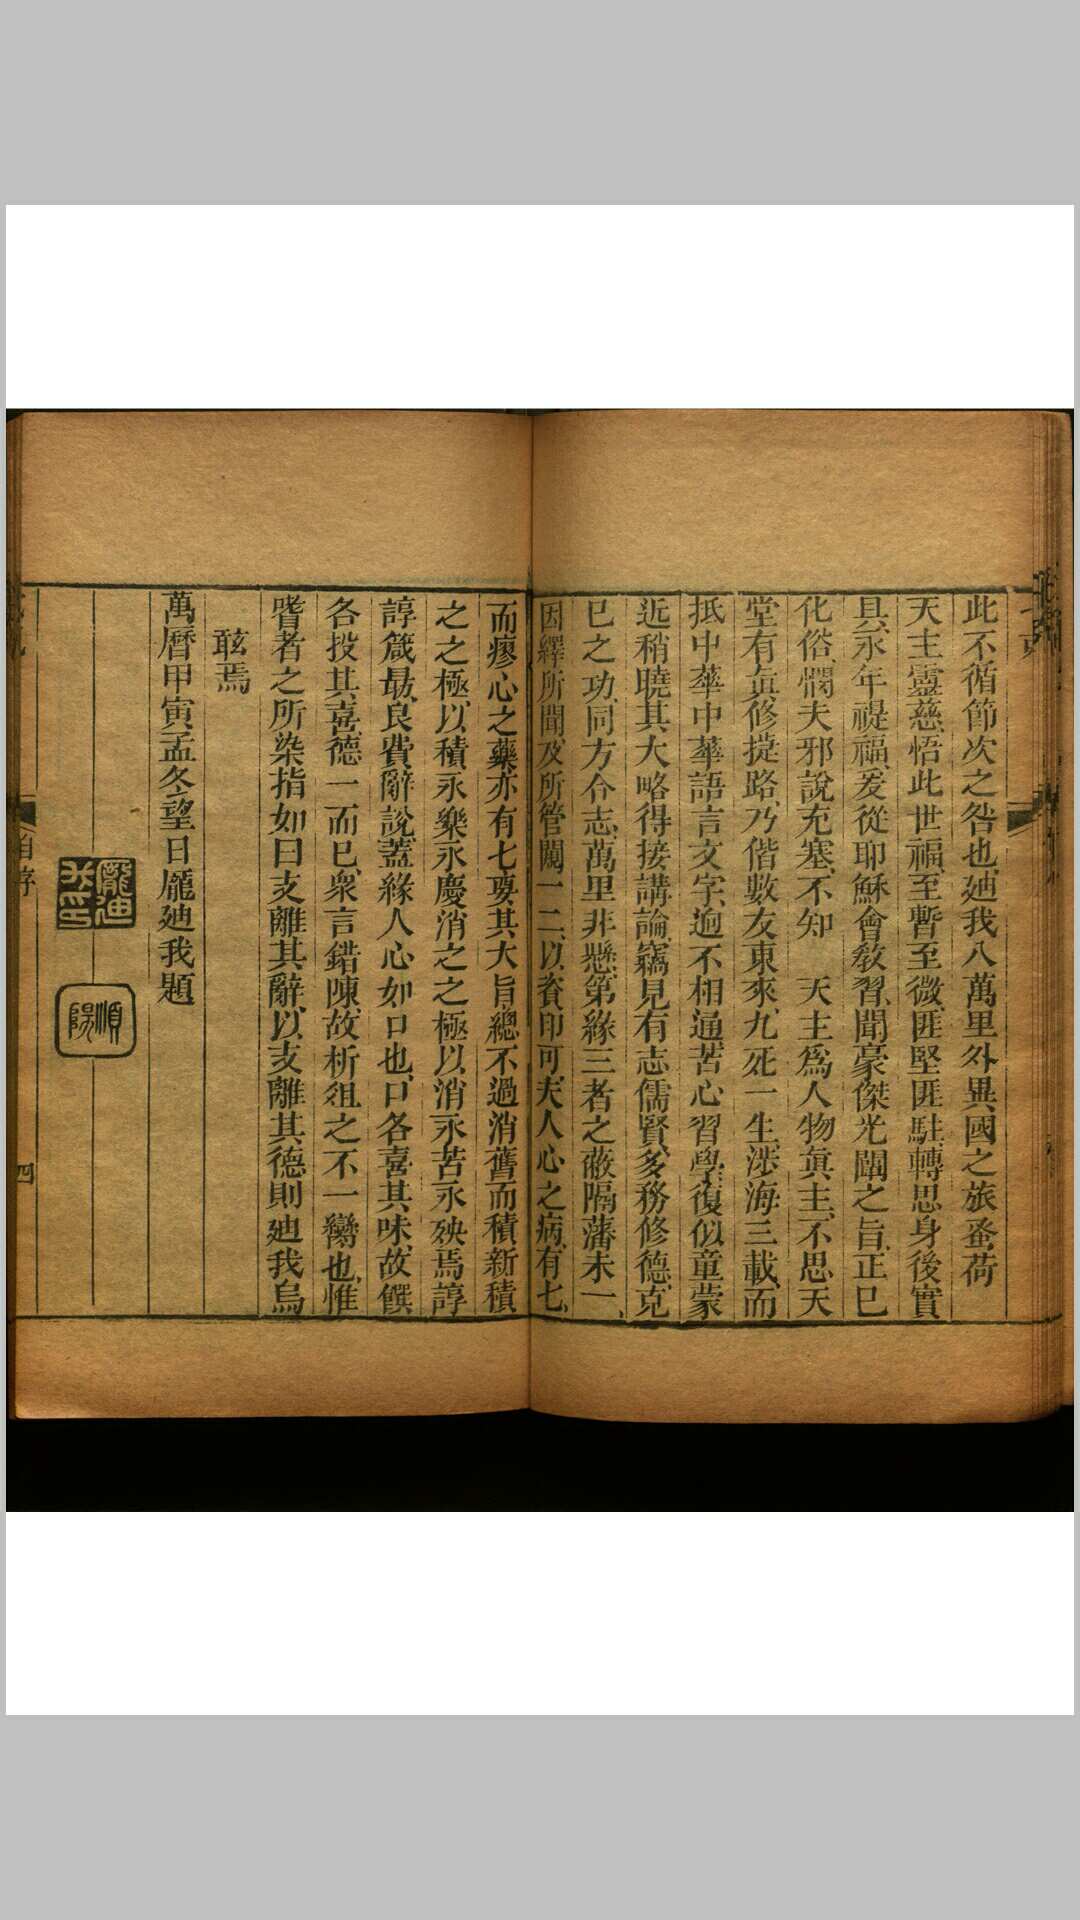 此不循節次之咎也、廸我八萬里外異國之旅蚤荷
天主靈慈、悟此世福、至暫至微、匪堅匪駐、轉思身後實
具永年禔福、爰從耶穌會敎習、聞豪傑光闡之旨、正巳
化俗、憫夫邪說充塞、不知　天主爲人物眞主、不思天
堂有眞修捷路、乃偕數友東來、九死一生、涉海三載、而
抵中華中華語言文字、逈不相通苦心習學、復似童蒙
近稍曉其大略得接講論、竊見有志儒賢、多務修德、克
巳之功、同方合志、萬里非懸、第緣三者之蔽隔藩未一、
因繹所聞、及所管闚一二、以資印可、夫人心之病、有七、
而瘳心之藥、亦有七、要其大旨、總不過消舊而積新積
之之極、以積永樂永慶消之之極、以消永苦永殃焉諄
諄箴最、良費辭說、蓋緣人心如口也、口各喜其味、故饌
各投其喜、德一而巳、衆言錯陳、故析俎之不一臠也、惟
嗜者之所染指如曰支離其辭、以支離其德則廸我烏
敢焉
萬曆甲寅孟冬望日龐廸我題
龐廸
我印
順
陽
自序
四